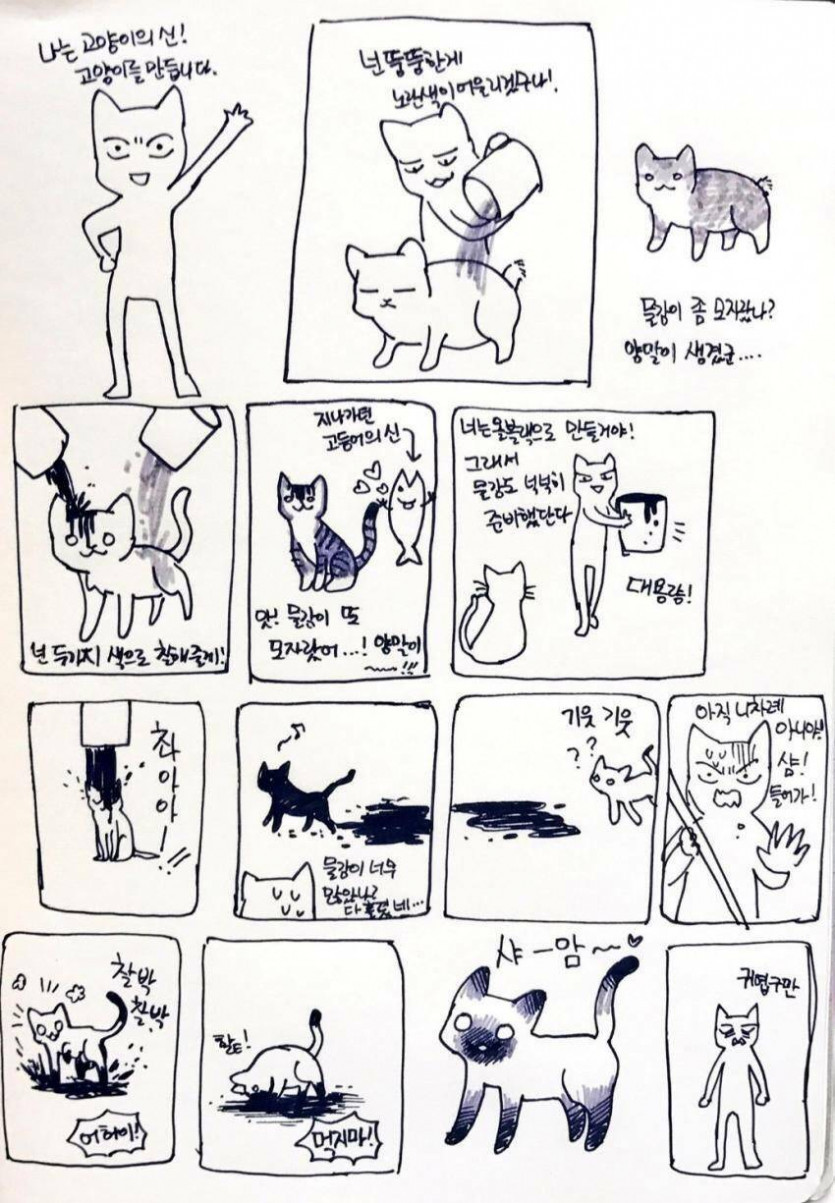 나는 고양이의 신!
고양이를 만듭니다.
넌 뚱뚱한게
노란색이 어울리겠구나!
물감이 좀 모자랐나?
양말이 생겼군....
넌 두가지 색으로 칠해줄게!
지나가던
고등어의 신
앗! 물감이 또
모자랐어...! 양말이
~~!!!
너는 올블랙으로 만들거야!
그래서
물감도 넉넉히
준비했단다
대용량!
촤아아
물감이 너무
많았나?
다 흘렸네...
기웃 기웃
??
아직 니차례
아니야!
샴!
들어가!
찰박
찰박
어허이!
할트!
먹지마!
샤ㅡ암~♡
귀엽구만